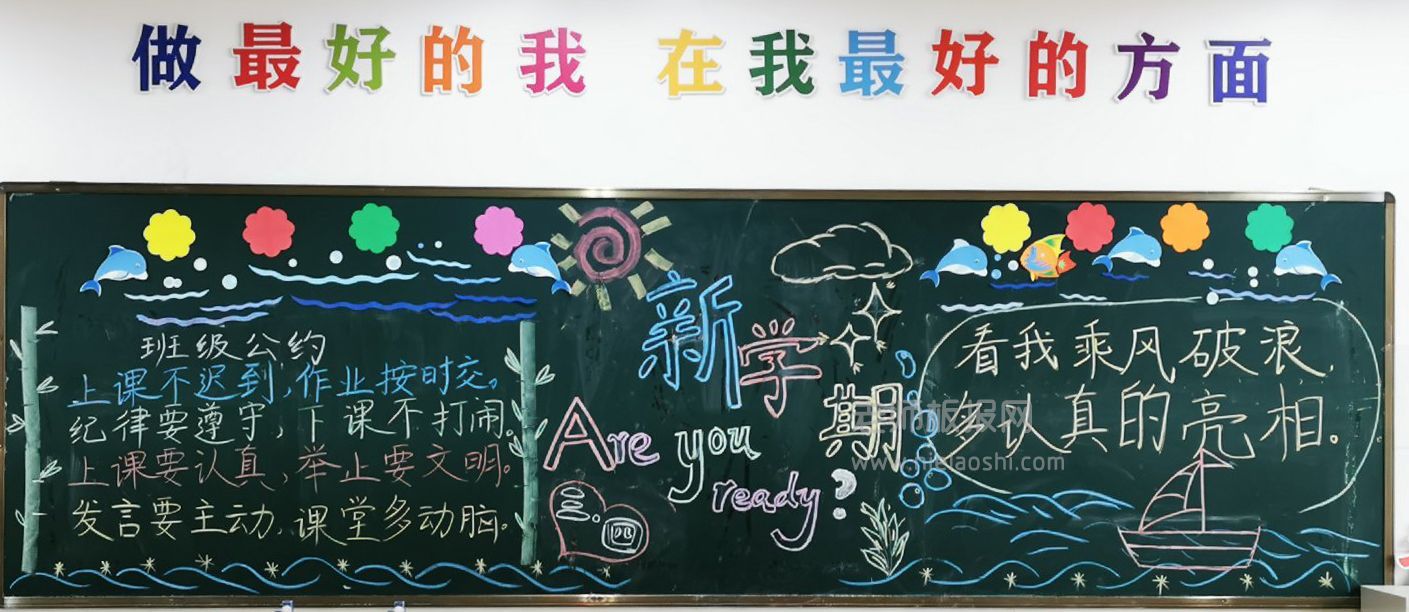 做最好的我 在我最好的方面
班级公约
上课不迟到,作业按时交。
纪律要遵守,下课不打闹。
上课要认真,举止要文明。
发言要主动,课堂多动脑。
新学期
Are you ready?
三.四
看我乘风破浪,
多认真的亮相。
老师板报网